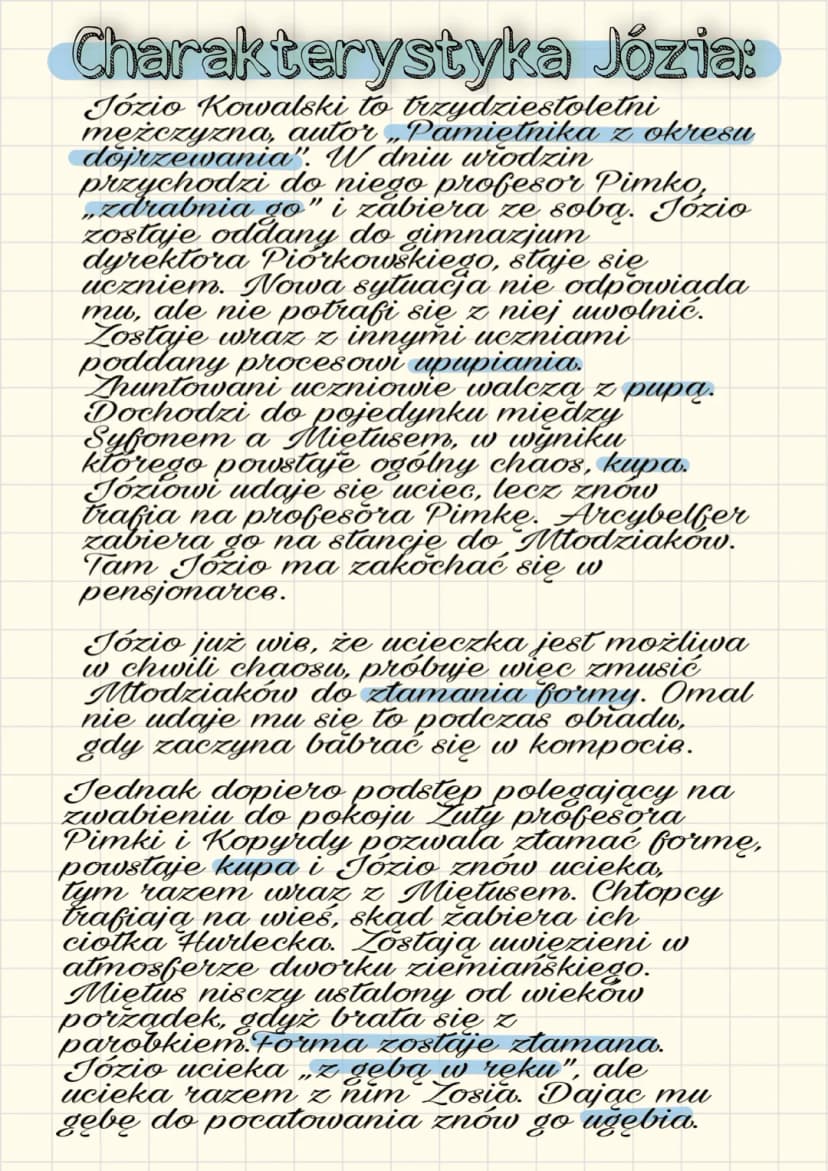 Charakterystyka Józia:
Józio Kowalski to trzydziestoletni
mężczyzna, autor „Pamiętnika z okresu
dojrzewania". W dniu urodzin
przychodzi do niego profesor Pimko,
„zdrabnia go" i zabiera ze sobą. Józio
zostaje oddany do gimnazjum
dyrektora Piórkowskiego, staje się
uczniem. Nowa sytuacja nie odpowiada
mu, ale nie potrafi się z niej uwolnić.
Zostaje wraz z innymi uczniami
poddany procesowi upupiania.
Zbuntowani uczniowie walczą z pupą.
Dochodzi do pojedynku między
Syfonem a Miętusem, w wyniku
którego powstaje ogólny chaos, kupa.
Józiowi udaje się uciec, lecz znów
trafia na profesora Pimkę. Arcybelfer
zabiera go na stancję do Młodziaków.
Tam Józio ma zakochać się w
pensjonarce.
Józio już wie, że ucieczka jest możliwa
w chwili chaosu, próbuje więc zmusić
Młodziaków do złamania formy. Omal
nie udaje mu się to podczas obiadu,
gdy zaczyna babrać się w kompocie.
Jednak dopiero podstęp polegający na
zwabieniu do pokoju Zuty profesora
Pimki i Kopyrdy pozwala złamać formę,
powstaje kupa i Józio znów ucieka,
tym razem wraz z Miętusem. Chłopcy
trafiają na wieś, skąd zabiera ich
ciotka Hurlecka. Zostają uwięzieni w
atmosferze dworku ziemiańskiego.
Miętus nisczy ustalony od wieków
porządek, gdyż brata się z
parobkiem.Forma zostaje złamana.
Józio ucieka „z gębą w ręku", ale
ucieka razem z nim Zosia. Dając mu
gębę do pocałowania znów go ugębia.